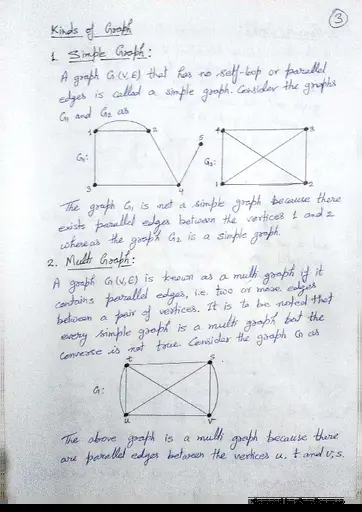 3
Kinds of Graph
1. Simple Graph:
A graph G(V,E) that has no self-loop or parallel
edges is called a simple graph. Consider the graphs
G1 and G2 as
1 2 5 4 3
G1: G2:
3 4 1 2
The graph G1 is not a simple graph because there
exists parallel edges between the vertices 1 and 2
whereas the graph G2 is a simple graph.
2. Multi Graph:
A graph G(V,E) is known as a multi graph if it
contains parallel edges, i.e. two or more edges
between a pair of vertices. It is to be noted that
every simple graph is a multi graph but the
converse is not true. Consider the graph G as
t s
G:
u v
The above graph is a multi graph because there
are parallel edges between the vertices u, t and v, s.